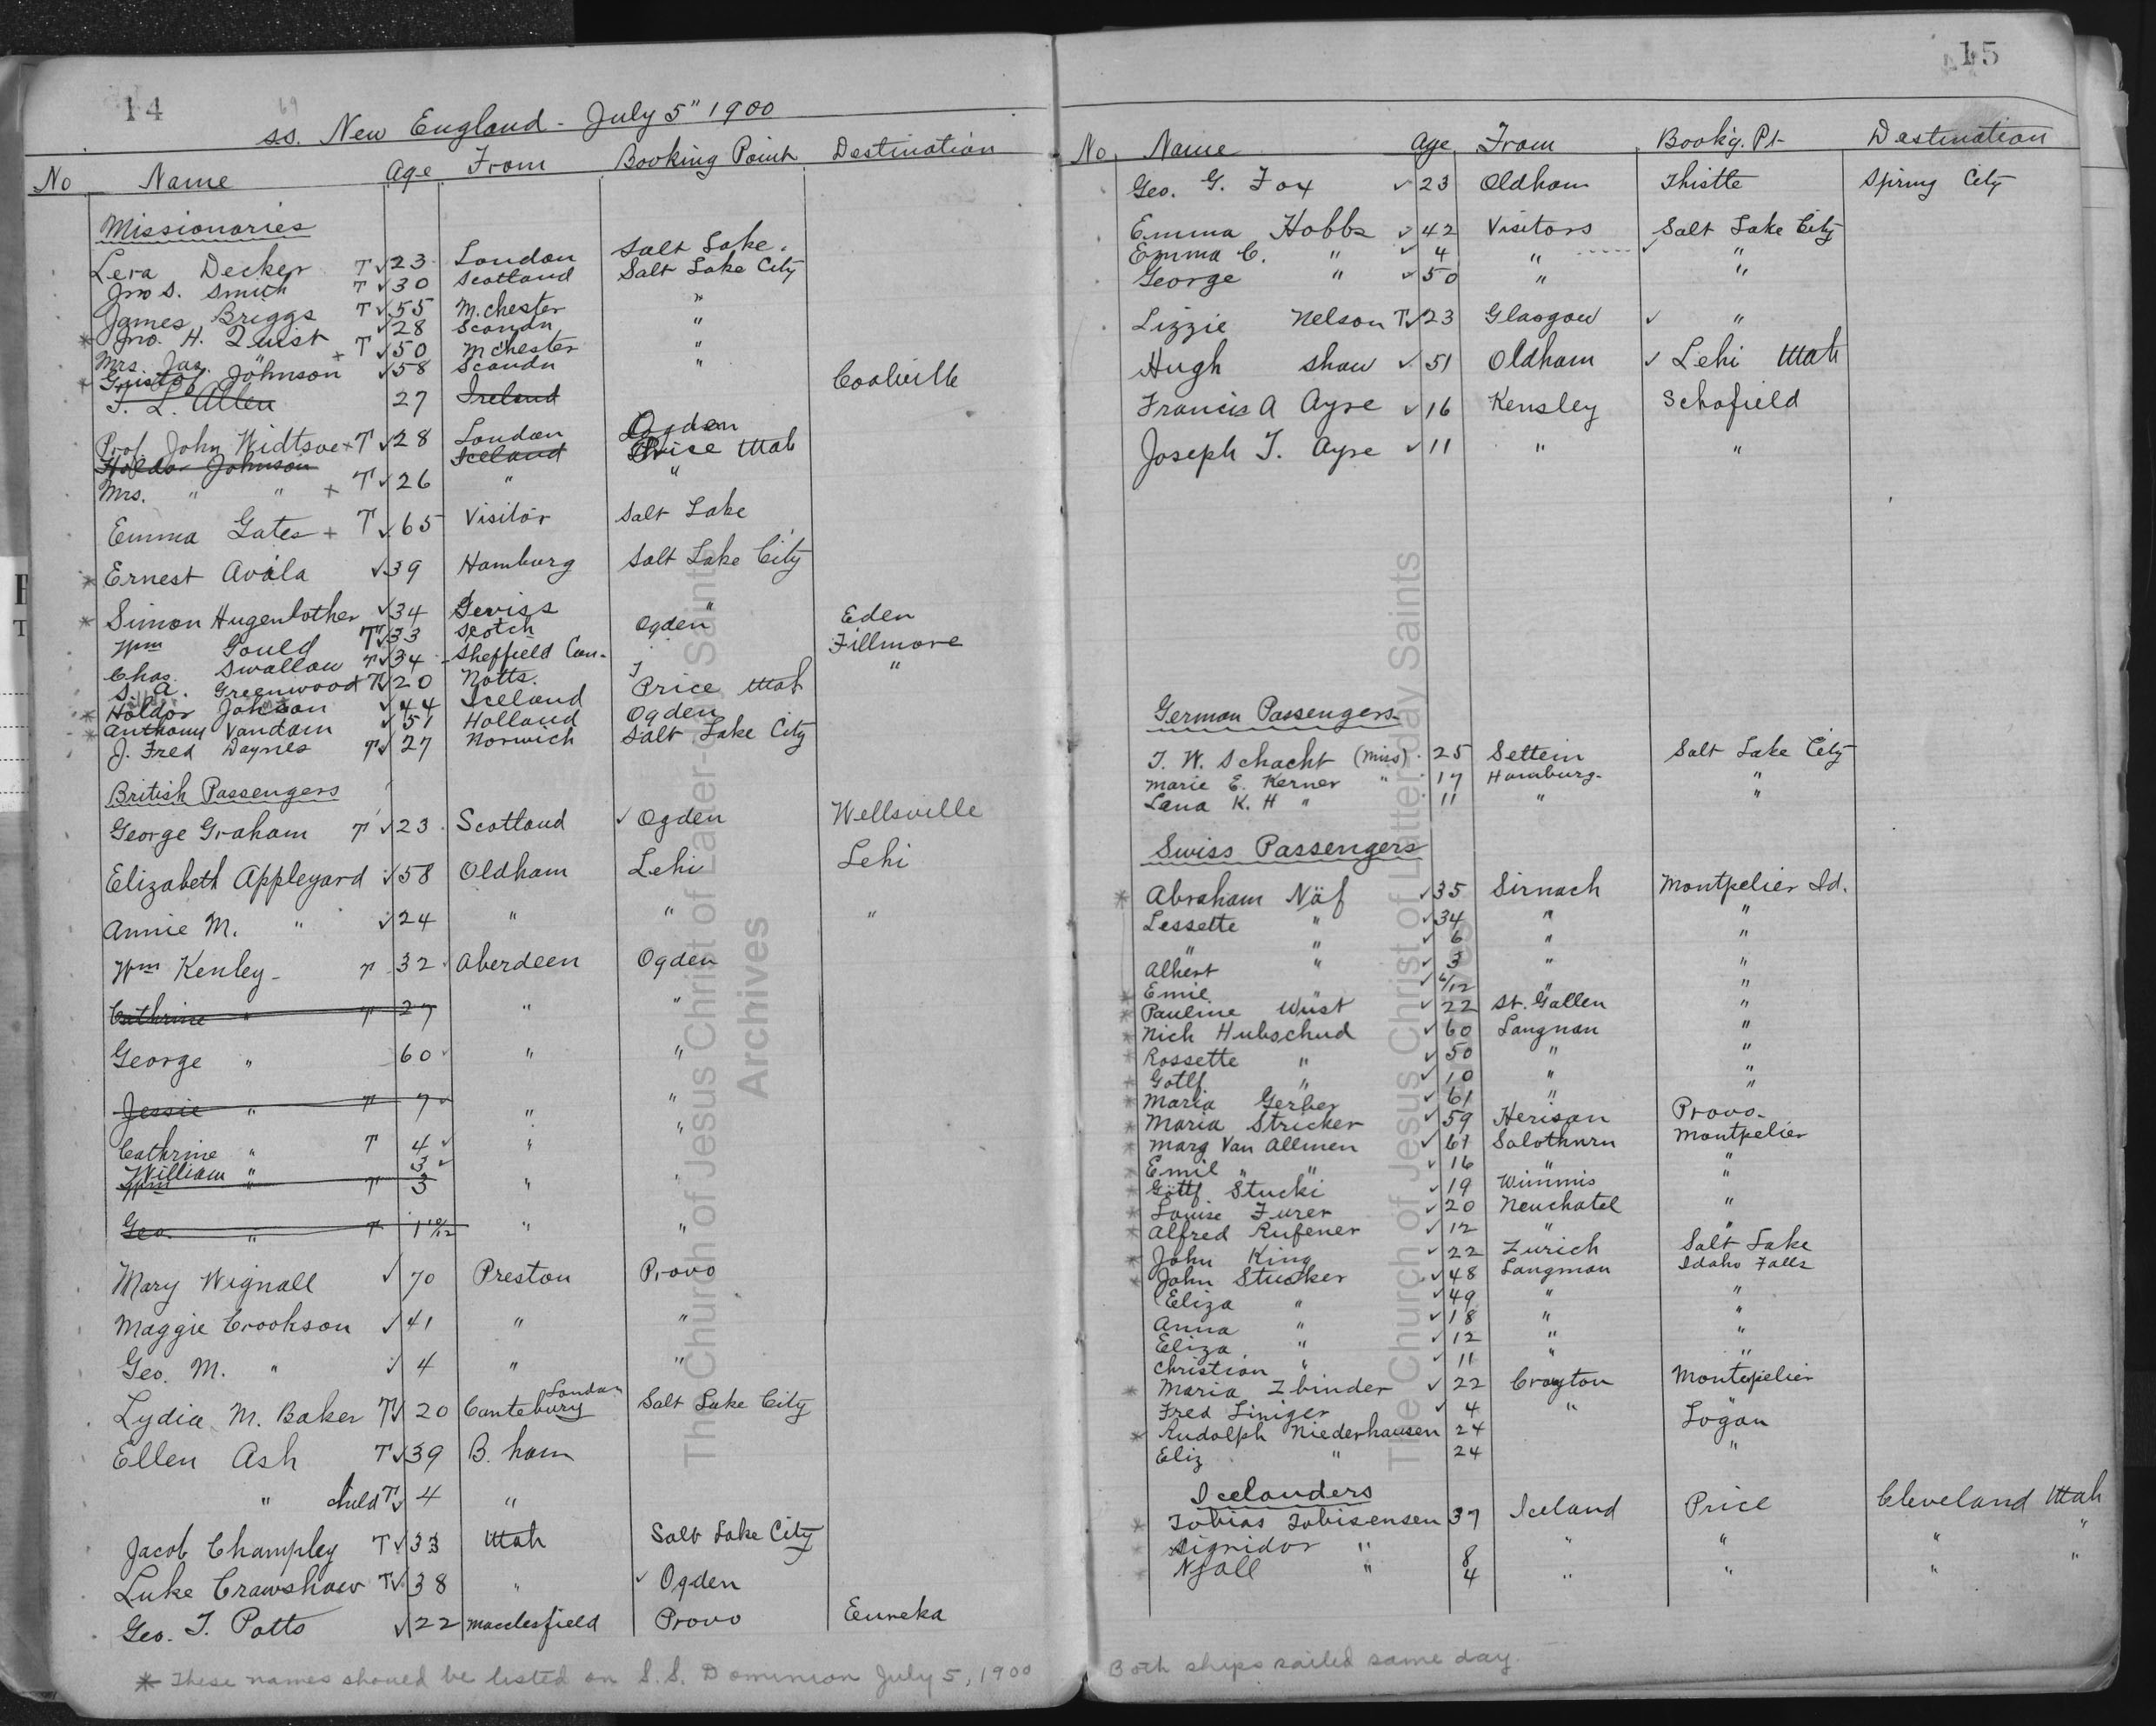 14
ss. New England - July 5" 1900
No Name Age From Booking Point Destination
Missionaries
Lera Decker T √ 23 London Salt Lake.
Jno S. Smith T √ 30 Scotland Salt Lake City
James Briggs T √ 55 M.chester "
* Jno. H. Quist √ 28 Scandn "
Mrs. Jas. " + T √ 50 M chester "
* Gustof Johnson √ 58 Scandn "
T. L. Allen 27 Ireland Coalville
Prof. John Widtsoe + T √ 28 London Ogden
Holdor Johnson Iceland Price Utah
Mrs. " " + T √ 26 " "
Emma Gates + T √ 65 Visitor Salt Lake
* Ernest Avala √ 39 Hamburg Salt Lake City
* Simon Hugentother √ 34 Swiss "
Wm Gould T √ 33 Scotch Ogden Eden
Chas. Swallow T √ 34 Sheffield Con. Fillmore
S. A. Greenwood T √ 20 Notts. "
* Holdor Johnson √ 44 Iceland Price Utah
* Anthony Vandam √ 51 Holland Ogden
J. Fred Daynes T √ 27 Norwich Salt Lake City
British Passengers
George Graham T √ 23 Scotland √ Ogden Wellsville
Elizabeth Appleyard √ 58 Oldham Lehi Lehi
Annie M. " √ 24 " " "
Wm Kenley T 32 Aberdeen Ogden
Cathrine " T 27 " "
George " 60 " "
Jessie " T 7 " "
Cathrine " T 4 " "
William " 3
Wm " T 3 " "
Geo " T 1 10/12 " "
Mary Wignall √ 70 Preston Provo
Maggie Crookson √ 41 " "
Geo. M. " √ 4 " "
Lydia M. Baker T √ 20 Cantebury London Salt Lake City
Ellen Ash T √ 39 B. ham
" child T √ 4 "
Jacob Champley T √ 33 Utah Salt Lake City
Luke Crawshaw T √ 38 " √ Ogden
Geo. T. Potts √ 22 Macclesfield Provo Eureka
* These names should be listed on S.S. Dominion July 5, 1900
15
No. Name Age From Book'g. Pt- Destination
Geo. G. Fox √ 23 Oldham Thistle Spring City
Emma Hobbs √ 42 Visitors Salt Lake City
Emma C. " √ 4 " √ "
George " √ 50 " "
Lizzie Nelson T √ 23 Glasgow √ "
Hugh Shaw √ 51 Oldham √ Lehi Utah
Francis A Ayre √ 16 Kensley Schofield
Joseph T. Ayre √ 11 " "
German Passengers
T. W. Schacht (Miss) 25 Settein Salt Lake City
Marie E. Kerner " 17 Hamburg "
Lana K. H " 11 " "
Swiss Passengers
* Abraham Näf √ 35 Sirnach Montpelier Id.
Lessette " √ 34 " "
" " √ 6 " "
Albert " √ 3 " "
* Emil " √ 6/12 " "
* Pauline Wüst √ 22 St. Gallen "
* Nich Hubschud √ 60 Langnan "
* Rossette " √ 50 " "
* Gotlf. " √ 10 " "
* Maria Gerber √ 61 " "
* Maria Stricker √ 59 Herisan Provo-
* Marg Van Allmen √ 61 Solothurn Montpelier
* Emil " " √ 16 " "
* Göttf. Stucki √ 19 Wimmis "
* Louise Furer √ 20 Neuchatel "
* Alfred Rufener √ 12 " "
* John King √ 22 Zurich Salt Lake
* John Stucker √ 48 Langman Idaho Falls
Eliza " √ 49 " "
Anna " √ 18 " "
Eliza " √ 12 " "
Christian " √ 11 " "
* Maria Zbinder √ 22 Croyton Montepelier
Fred Liniger √ 4 " "
* Rudolph Niederhausen 24 Logan
Eliz " 24 "
Icelanders
* Tobias Tobisensen 37 Iceland Price Cleveland Utah
* Signidor " 8 " " " "
* Njall " 4 " " " "
Both ships sailed same day.
The Church of Jesus Christ of Latter-day Saints
Archives
The Church of Jesus Christ of Latter-day Saints